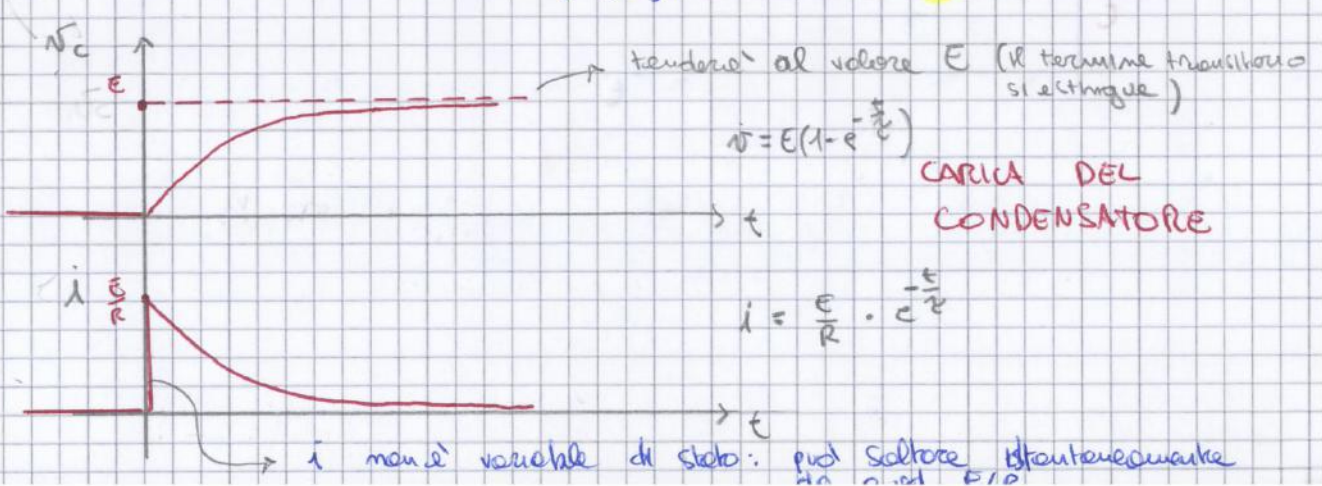 vc
E
tenderà al valore E (il termine transitorio
si estingue)
v = E(1-e^-t/τ)
CARICA DEL
CONDENSATORE
t
i E/R
i = E/R · e^-t/τ
t
i non è variabile di stato: può saltare istantaneamente
da 0 ad E/R